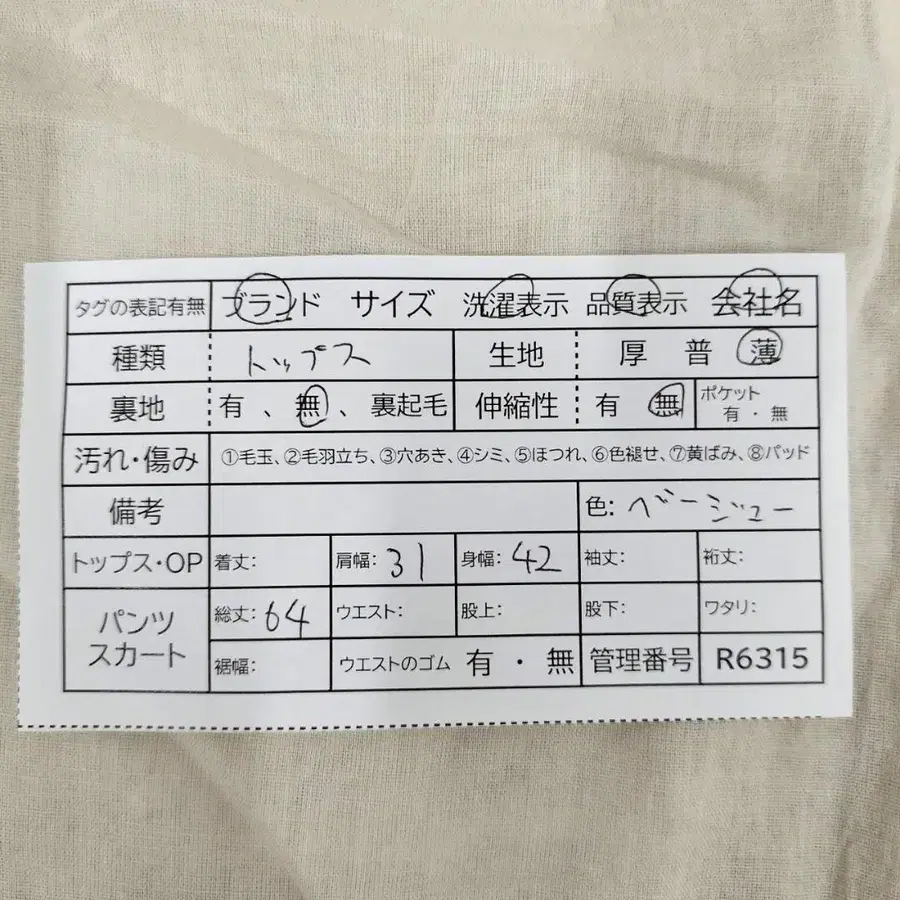 タグの表記有無 ブランド サイズ 洗濯表示 品質表示 会社名
種類 トップス 生地 厚 普 薄
裏地 有 、 無 、 裏起毛 伸縮性 有 無 ポケット 有 ・ 無
汚れ・傷み ①毛玉、②毛羽立ち、③穴あき、④シミ、⑤ほつれ、⑥色褪せ、⑦黄ばみ、⑧パッド
備考 色: ベージュー
トップス・OP 着丈: 肩幅: 31 身幅: 42 袖丈: 裄丈:
パンツ スカート 総丈: 64 ウエスト: 股上: 股下: ワタリ:
裾幅: ウエストのゴム 有 ・ 無 管理番号 R6315